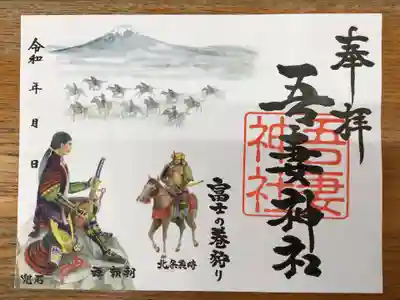 奉拝
吾妻神社
吾妻神社
富士の巻狩り
北条義時
源頼朝
兜石
令和 年 月 日